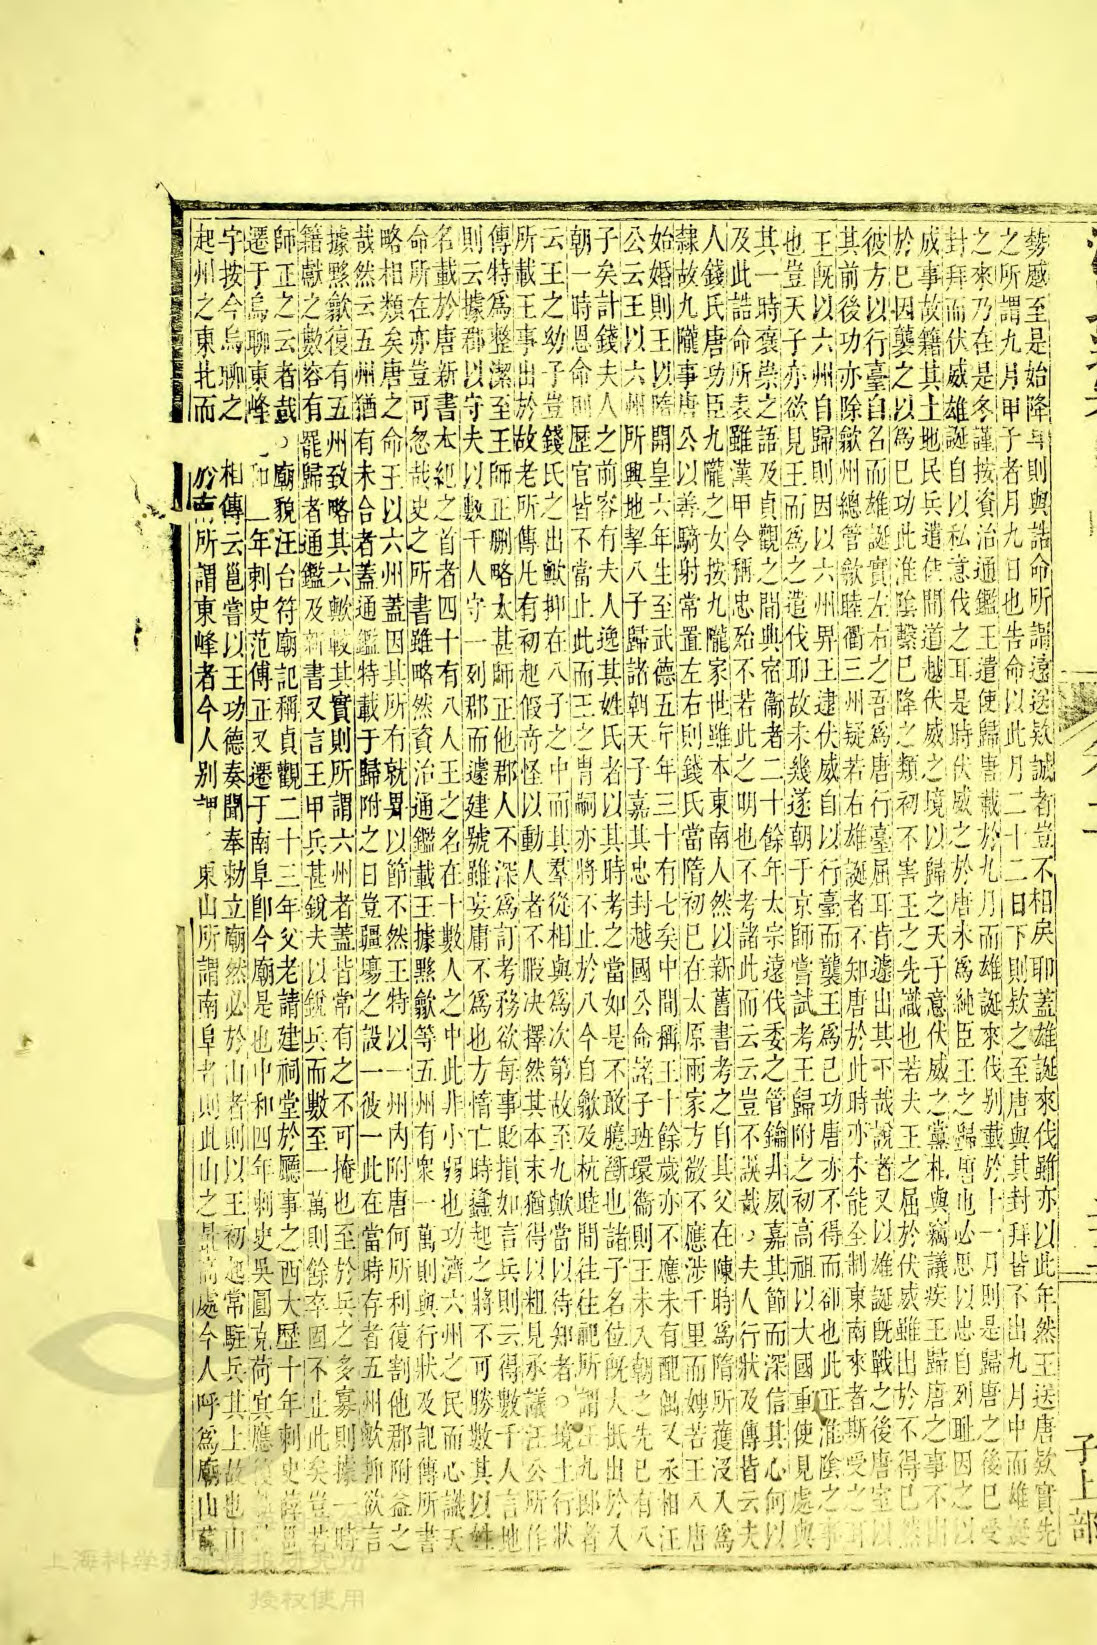 勢感至是始降耳則與誥命所謂遠送欵誠者豈不相戾耶蓋雄誕來伐雖亦以此年然王送唐欵實先
之所謂九月甲子者月九日也告命以此月二十二日下則欵之至唐與其封拜皆不出九月中而雄誕
之來乃在是冬謹按資治通鑑王遣使歸唐載於九月而雄誕來伐别載於十一月則是歸唐之後已受
封拜而伏威雄誕自以私意伐之耳是時伏威之於唐未爲純臣王之歸唐也必思以忠自列耻因之以
成事故籍其土地民兵遣使間道越伏威之境以歸之天子意伏威之黨相與竊議疾王歸唐之事不出
於已因襲之以爲已功此淮陰繫已降之類初不害王之先識也若夫王之屈於伏威雖出於不得已然
彼方以行臺自名而雄誕實左右之吾爲唐行臺屈耳肯遽出其下哉說者又以雄誕既戰之後唐室以
其前後功亦除歙州總管歙睦衢三州疑若右雄誕者不知唐於此時亦未能全制東南來者斯受之耳
王既以六州自歸則因以六州界王逮伏威自以行臺而襲王爲己功唐亦不得而卻也此正淮陰之事
也豈天子亦欲見王而爲之遣伐耶故未幾遂朝于京師嘗試考王歸附之初高祖以大國重使見處與
其一時褒崇之語及貞觀之間典宿衞者二十餘年太宗遠伐委之管鑰井風嘉其節而深信其心何以
及此誥命所表雖漢甲令稱忠殆不若此之明也不考諸此而云云豈不誤哉夫人行狀及傳皆云夫
人錢氏唐功臣九隴之女按九隴家世雖本東南人然以新舊書考之自其父在陳時爲隋所獲沒入爲
隸故九隴事唐公以善騎射常置左右則錢氏當隋初已在太原兩家方微不應涉千里而娉若王入唐
始婚則王以隋開皇六年生至武德五年年三十有七矣中間稱王十餘歲亦不應未有配偶又丞相汪
公云王以六州所興地挈八子歸諸朝天子嘉其忠封越國公命諸子班環衞則王未入朝之先已有八
子矣計錢夫人之前容有夫人逸其姓氏者以其時考之當如是不敢臆斷也諸子名位既大抵出於入
朝一時恩命則歷官皆不當止此而王之冑嗣亦將不止於八今自歙及杭睦間往往祀所謂汪九郎者
云王之幼子豈錢氏之出歟抑在八子之中而其羣從相與爲次第故至九歟當以待知者。境土行狀
所載王事出於故老所傳凡有初起假奇怪以動人者不暇决擇然其本末猶得以粗見承議汪公所作
傳特爲整潔至王師正删略太甚師正他郡人不深爲訂考務欲每事貶損如言兵則云得數千人言地
則云據郡以守夫以數千人守一列郡而遽建號雖妄庸不爲也方惰亡時蠭起之將不可勝數其以姓
名載於唐新書本紀之首者四十有八人王之名在十數人之中此非小弱也功濟六州之民而心識天
命所在亦豈可忽哉史之所書雖略然資治通鑑載王據黟歙等五州有衆一萬則與行狀及記傳所書
略相類矣唐之命王以六州蓋因其所有就畀以節不然王特以一州內附唐何所利復割他郡附益之
哉然云五州猶有未合者蓋通鑑特載于歸附之日豈疆埸之設一彼一此在當時存者五州歟抑欲言
據黟歙復有五州致略其六歟較其實則所謂六州者蓋皆常有之不可掩也至於兵之多寡則據一時
籍獻之數容有罷歸者通鑑及新書又言王甲兵甚銳夫以銳兵而數至一萬則餘卒固不止此矣豈若
師正之云者哉 廟貌汪台符廟記稱貞觀二十三年父老請建祠堂於廳事之西大歷十年刺史薛邕
遷于烏聊東峰 和 年刺史范傳正又遷于南阜卽今廟是也中和四年刺史吳圓克荷冥應
字按今烏聊之 相傳云邕嘗以王功德奏聞奉勅立廟然必於山者則以王初起常駐兵其上故也山
起州之東北而 所謂東峰者今人别 東山所謂南阜者則此山之最高處今人呼爲廟山
子上部
上海科学技术情报研究所
授权使用